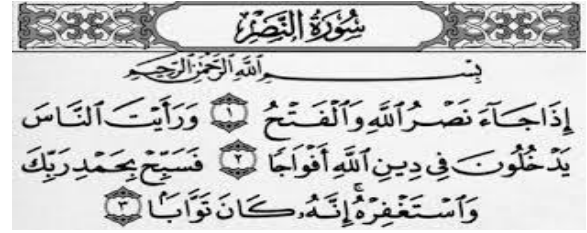 سُورَةُ النَّصْرِ
بِسْمِ ٱللَّهِ ٱلرَّحْمَٰنِ ٱلرَّحِيمِ
إِذَا جَآءَ نَصْرُ ٱللَّهِ وَٱلْفَتْحُ ١ وَرَأَيْتَ ٱلنَّاسَ
يَدْخُلُونَ فِي دِينِ ٱللَّهِ أَفْوَاجًا ٢ فَسَبِّحْ بِحَمْدِ رَبِّكَ
وَٱسْتَغْفِرْهُ ۚ إِنَّهُۥ كَانَ تَوَّابًۢا ٣